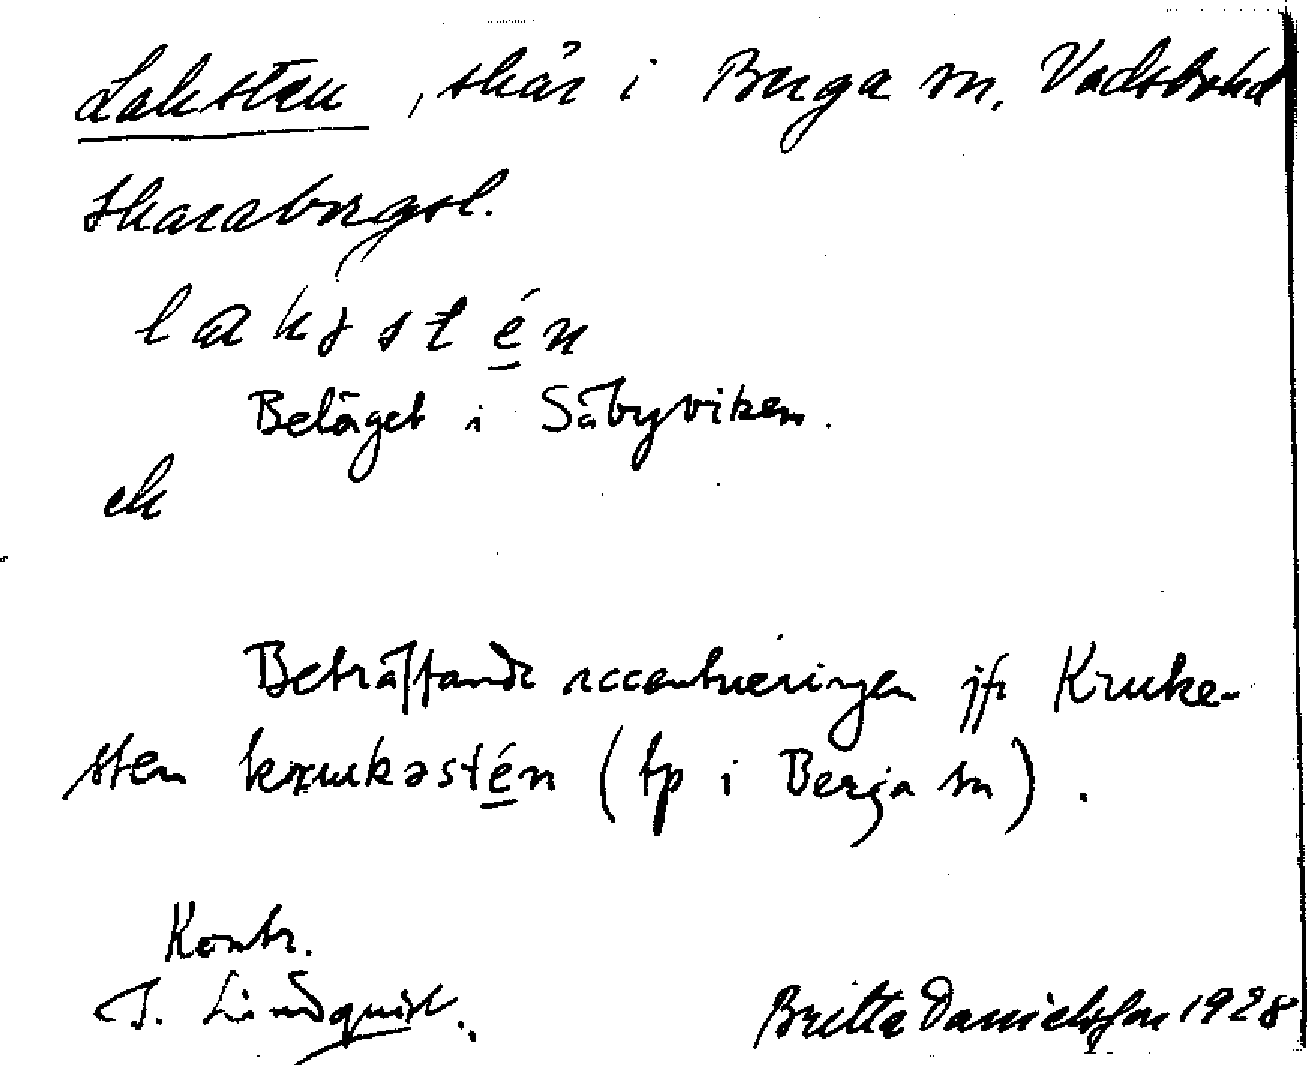 Laksten, skär i Berga sn, Vadsbo hd
Skaraborgsl.
laksstén
Beläget i Säbyviken.
ek
Beträffande accentueringen jfr Kruke-
sten krukəstén (tp i Berga sn).
Kontr.
I. Lindquist.
Britta Danielsson 1928